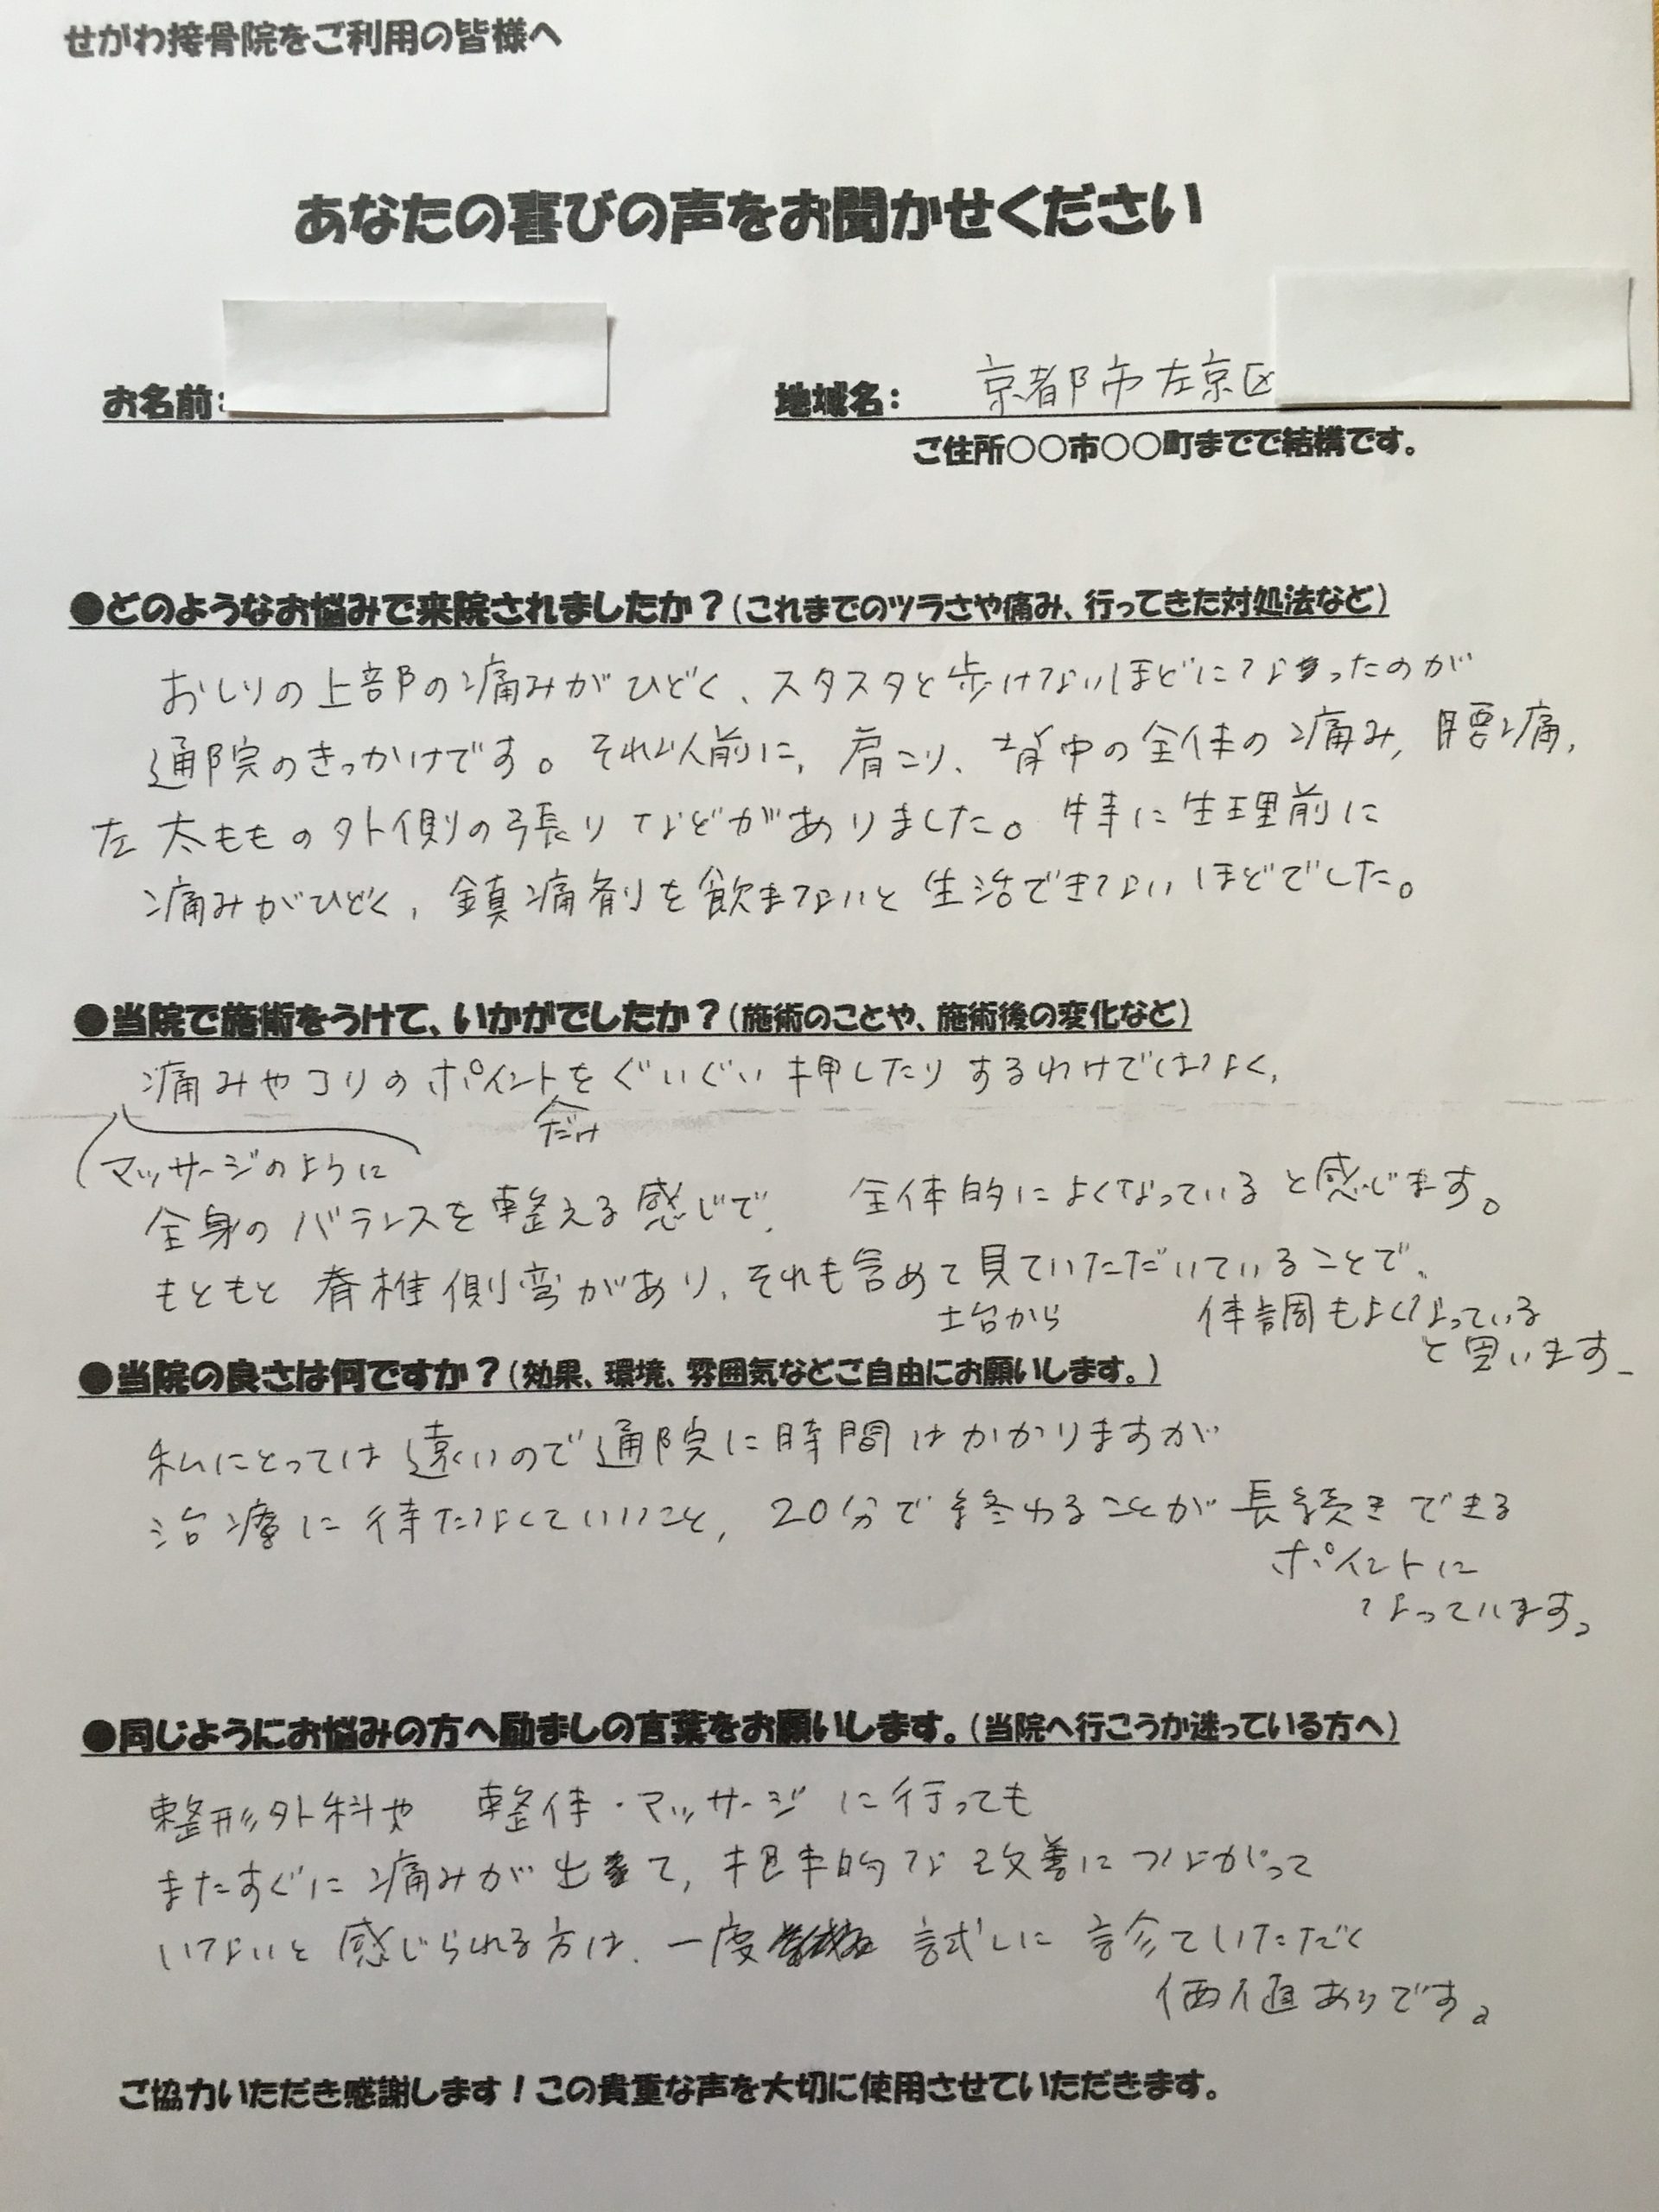 せがわ接骨院をご利用の皆様へ
あなたの喜びの声をお聞かせください
お名前:
地域名: 京都市左京区
ご住所○○市○○町までで結構です。
●どのようなお悩みで来院されましたか?(これまでのツラさや痛み、行ってきた対処法など)
おしりの上部の痛みがひどく、スタスタと歩けないほどになったのが
通院のきっかけです。それ以前に、肩こり、背中の全体の痛み、腰痛、
左太ももの外側の張りなどがありました。特に生理前に
痛みがひどく、鎮痛剤を飲まないと生活できないほどでした。
●当院で施術をうけて、いかがでしたか?(施術のことや、施術後の変化など)
痛みやコリのポイントをぐいぐい押したりするわけではなく、
だけ
マッサージのように
全身のバランスを整える感じで、全体的によくなっていると感じます。
もともと脊椎側弯があり、それも含めて見ていただいていることで、
土台から 体調もよくなっている
と思います。
●当院の良さは何ですか?(効果、環境、雰囲気などご自由にお願いします。)
私にとっては遠いので通院に時間はかかりますが
治療に待たなくていいこと、20分で終わることが長続きできる
ポイントに
なっています。
●同じようにお悩みの方へ励ましの言葉をお願いします。(当院へ行こうか迷っている方へ)
整形外科や 整体・マッサージに行っても
またすぐに痛みが出て、根本的な改善につながって
いないと感じられる方は、一度 試しに診ていただく
価値ありです。
ご協力いただき感謝します!この貴重な声を大切に使用させていただきます。